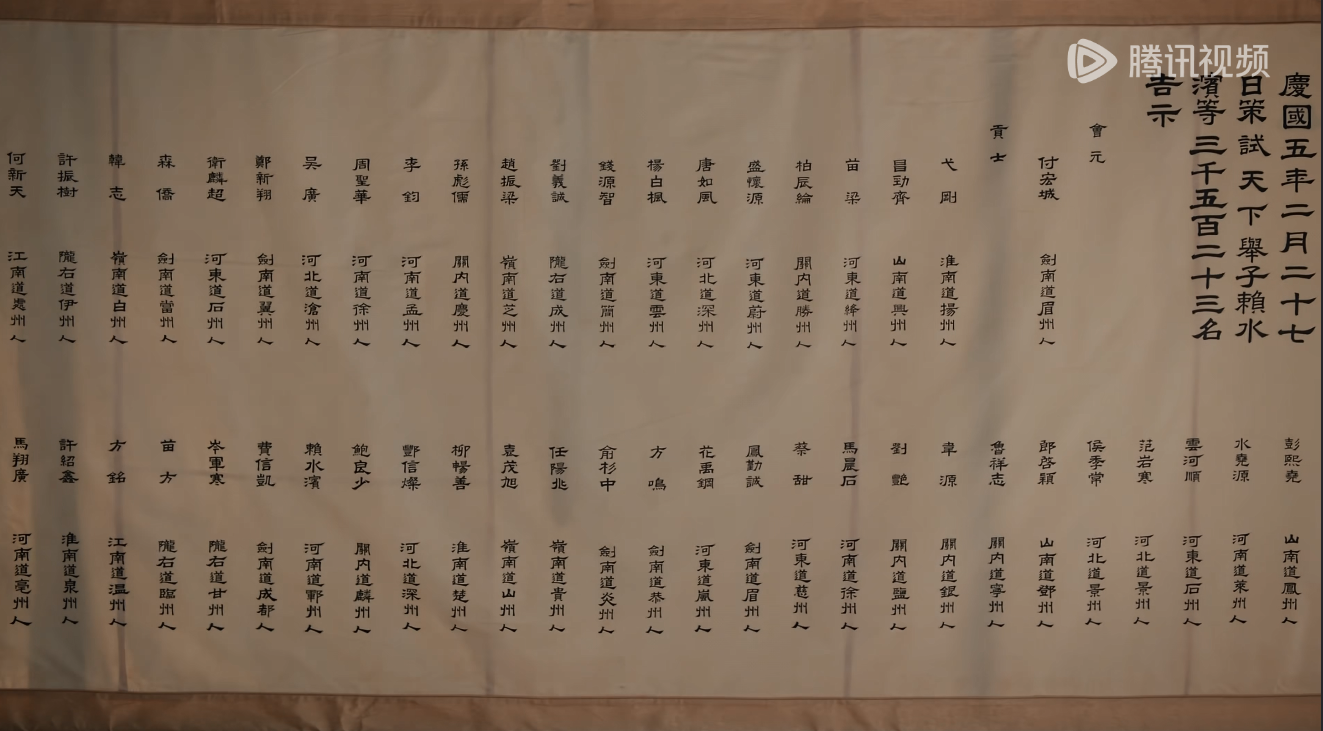 慶國五年二月二十七
日策試天下舉子賴水
濱等三千五百二十三名
告示
會元
付宏城 劍南道眉州人
貢士
弋剛 淮南道揚州人
昌勁齊 山南道興州人
苗梁 河東道絳州人
柏辰綸 關内道勝州人
盛懷源 河東道蔚州人
唐如風 河北道深州人
楊白楓 河東道雲州人
錢源智 劍南道簡州人
劉義誠 隴右道成州人
趙振梁 嶺南道芝州人
孫彪儒 關内道慶州人
李鈞 河南道孟州人
周聖華 河南道徐州人
吳廣 河北道滄州人
鄭新翔 劍南道翼州人
衛麟超 河東道石州人
森僑 劍南道當州人
韓志 嶺南道白州人
許振樹 隴右道伊州人
何新天 江南道處州人
彭熙堯 山南道鳳州人
水堯源 河南道萊州人
雲河順 河東道石州人
范岩寒 河北道景州人
侯季常 河北道景州人
郎啓穎 山南道鄧州人
魯祥志 關内道寧州人
韋源 關内道銀州人
劉艷 關内道鹽州人
馬晨石 河南道徐州人
蔡甜 河東道慈州人
鳳勤誠 劍南道眉州人
花禹鋼 河東道嵐州人
方鳴 劍南道恭州人
俞杉中 劍南道炎州人
任陽兆 嶺南道貴州人
袁茂旭 嶺南道山州人
柳暢善 淮南道楚州人
酈信燦 河北道深州人
鮑良少 關内道麟州人
賴水濱 河南道鄆州人
費信凱 劍南道成都人
岑軍寒 隴右道甘州人
苗方 隴右道臨州人
方銘 江南道溫州人
許紹鑫 淮南道泉州人
馬翔廣 河南道亳州人
腾讯视频